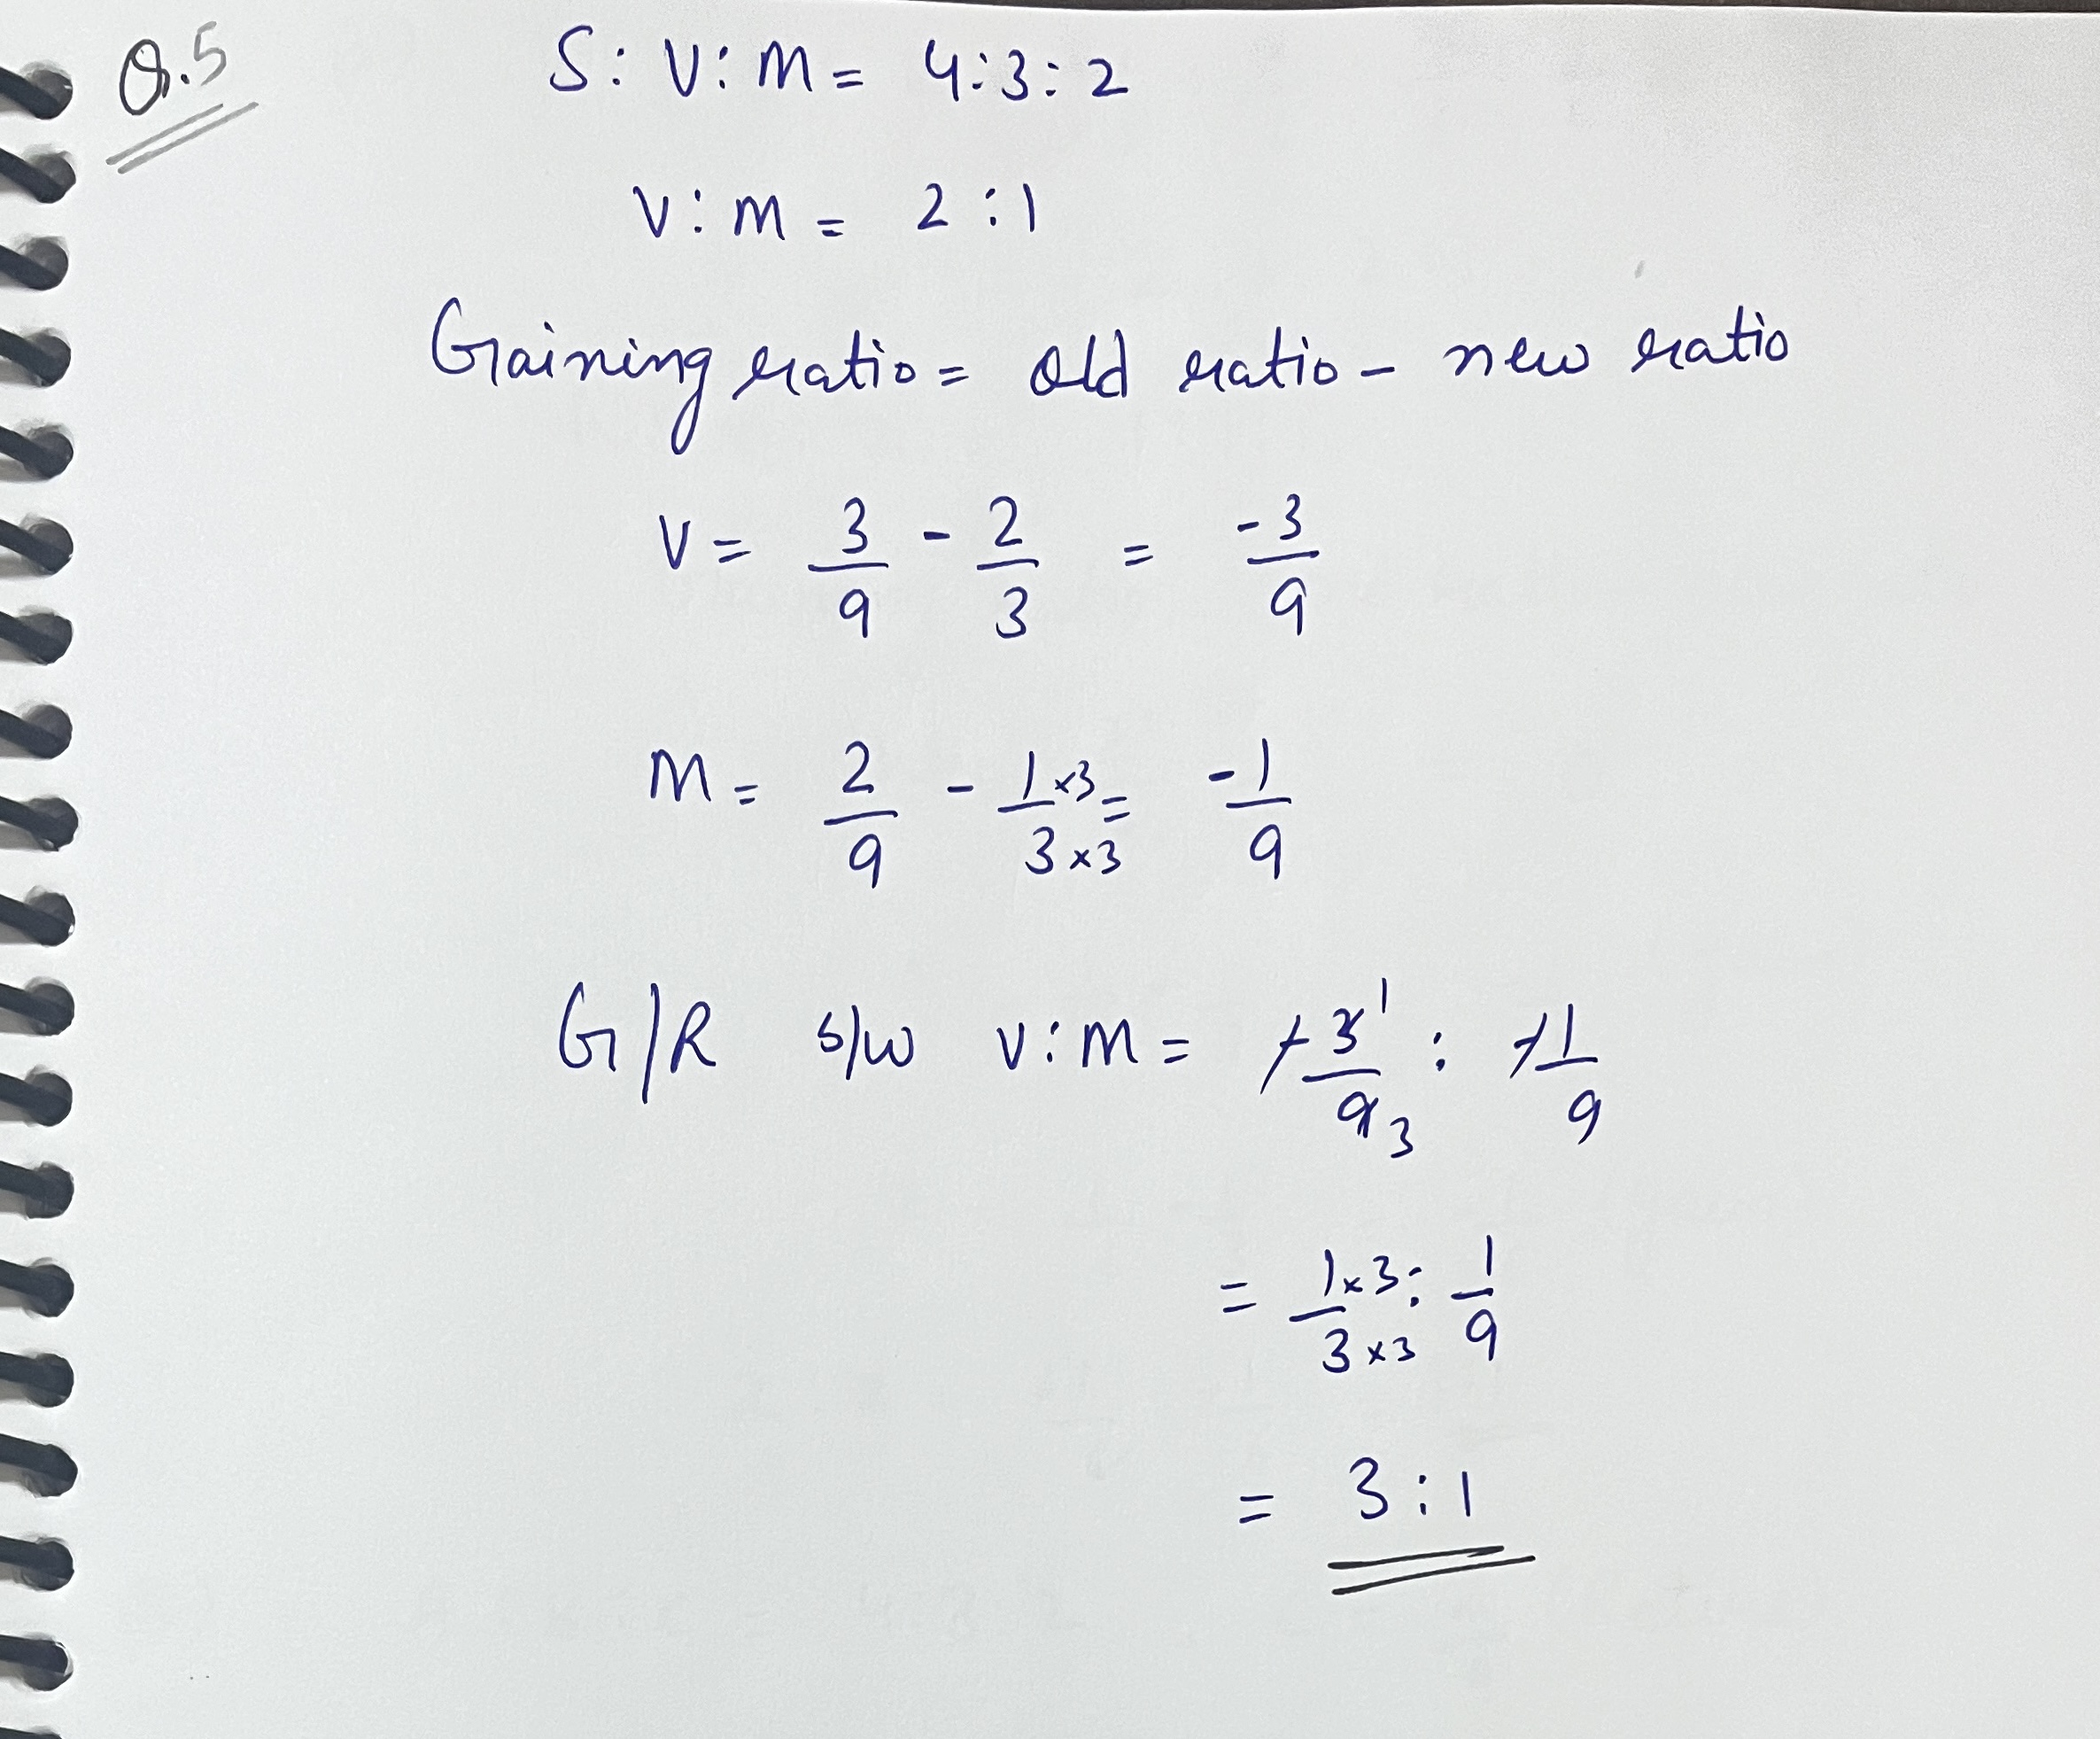 Q.5
S : V : M = 4 : 3 : 2
V : M = 2 : 1
Gaining ratio = Old ratio - new ratio
V = 3/9 - 2/3 = -3/9
M = 2/9 - 1×3/3×3 = -1/9
G/R b/w V : M = -3/9 1 3 : -1/9
= 1×3/3×3 : 1/9
= 3 : 1